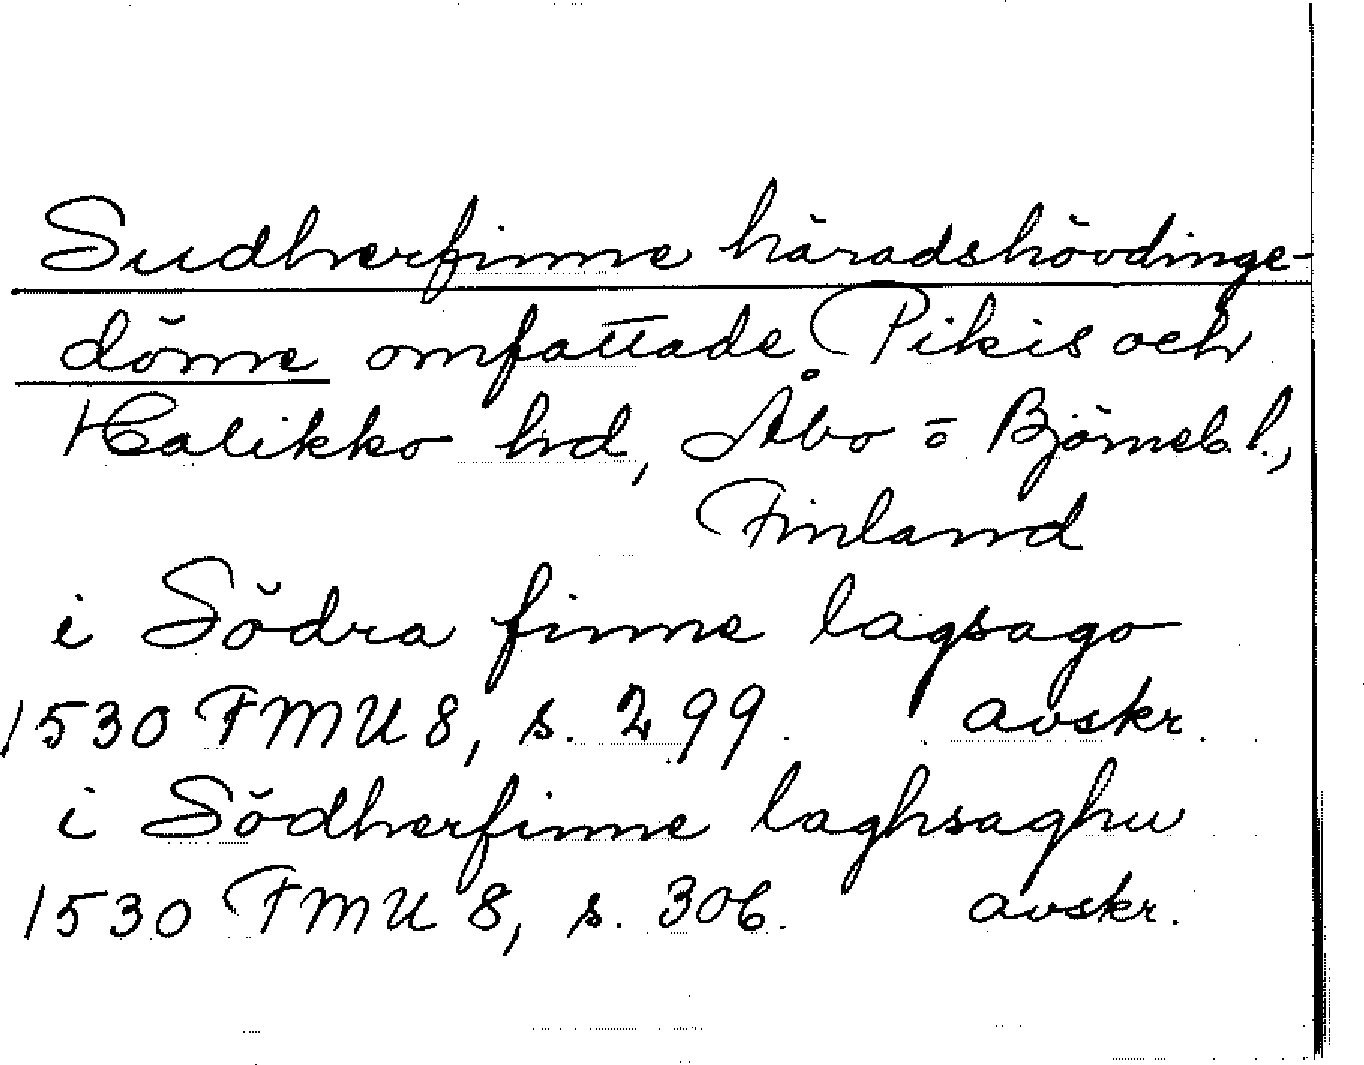 Sudherfinne häradshövdinge-
döme omfattade Pikis och
Halikko hrd, Åbo o Björneb. l.,
Finland
i Södra finne lagsago
1530 FMU 8, s. 299. avskr.
i Södherfinne laghsaghu
1530 FMU 8, s. 306. avskr.